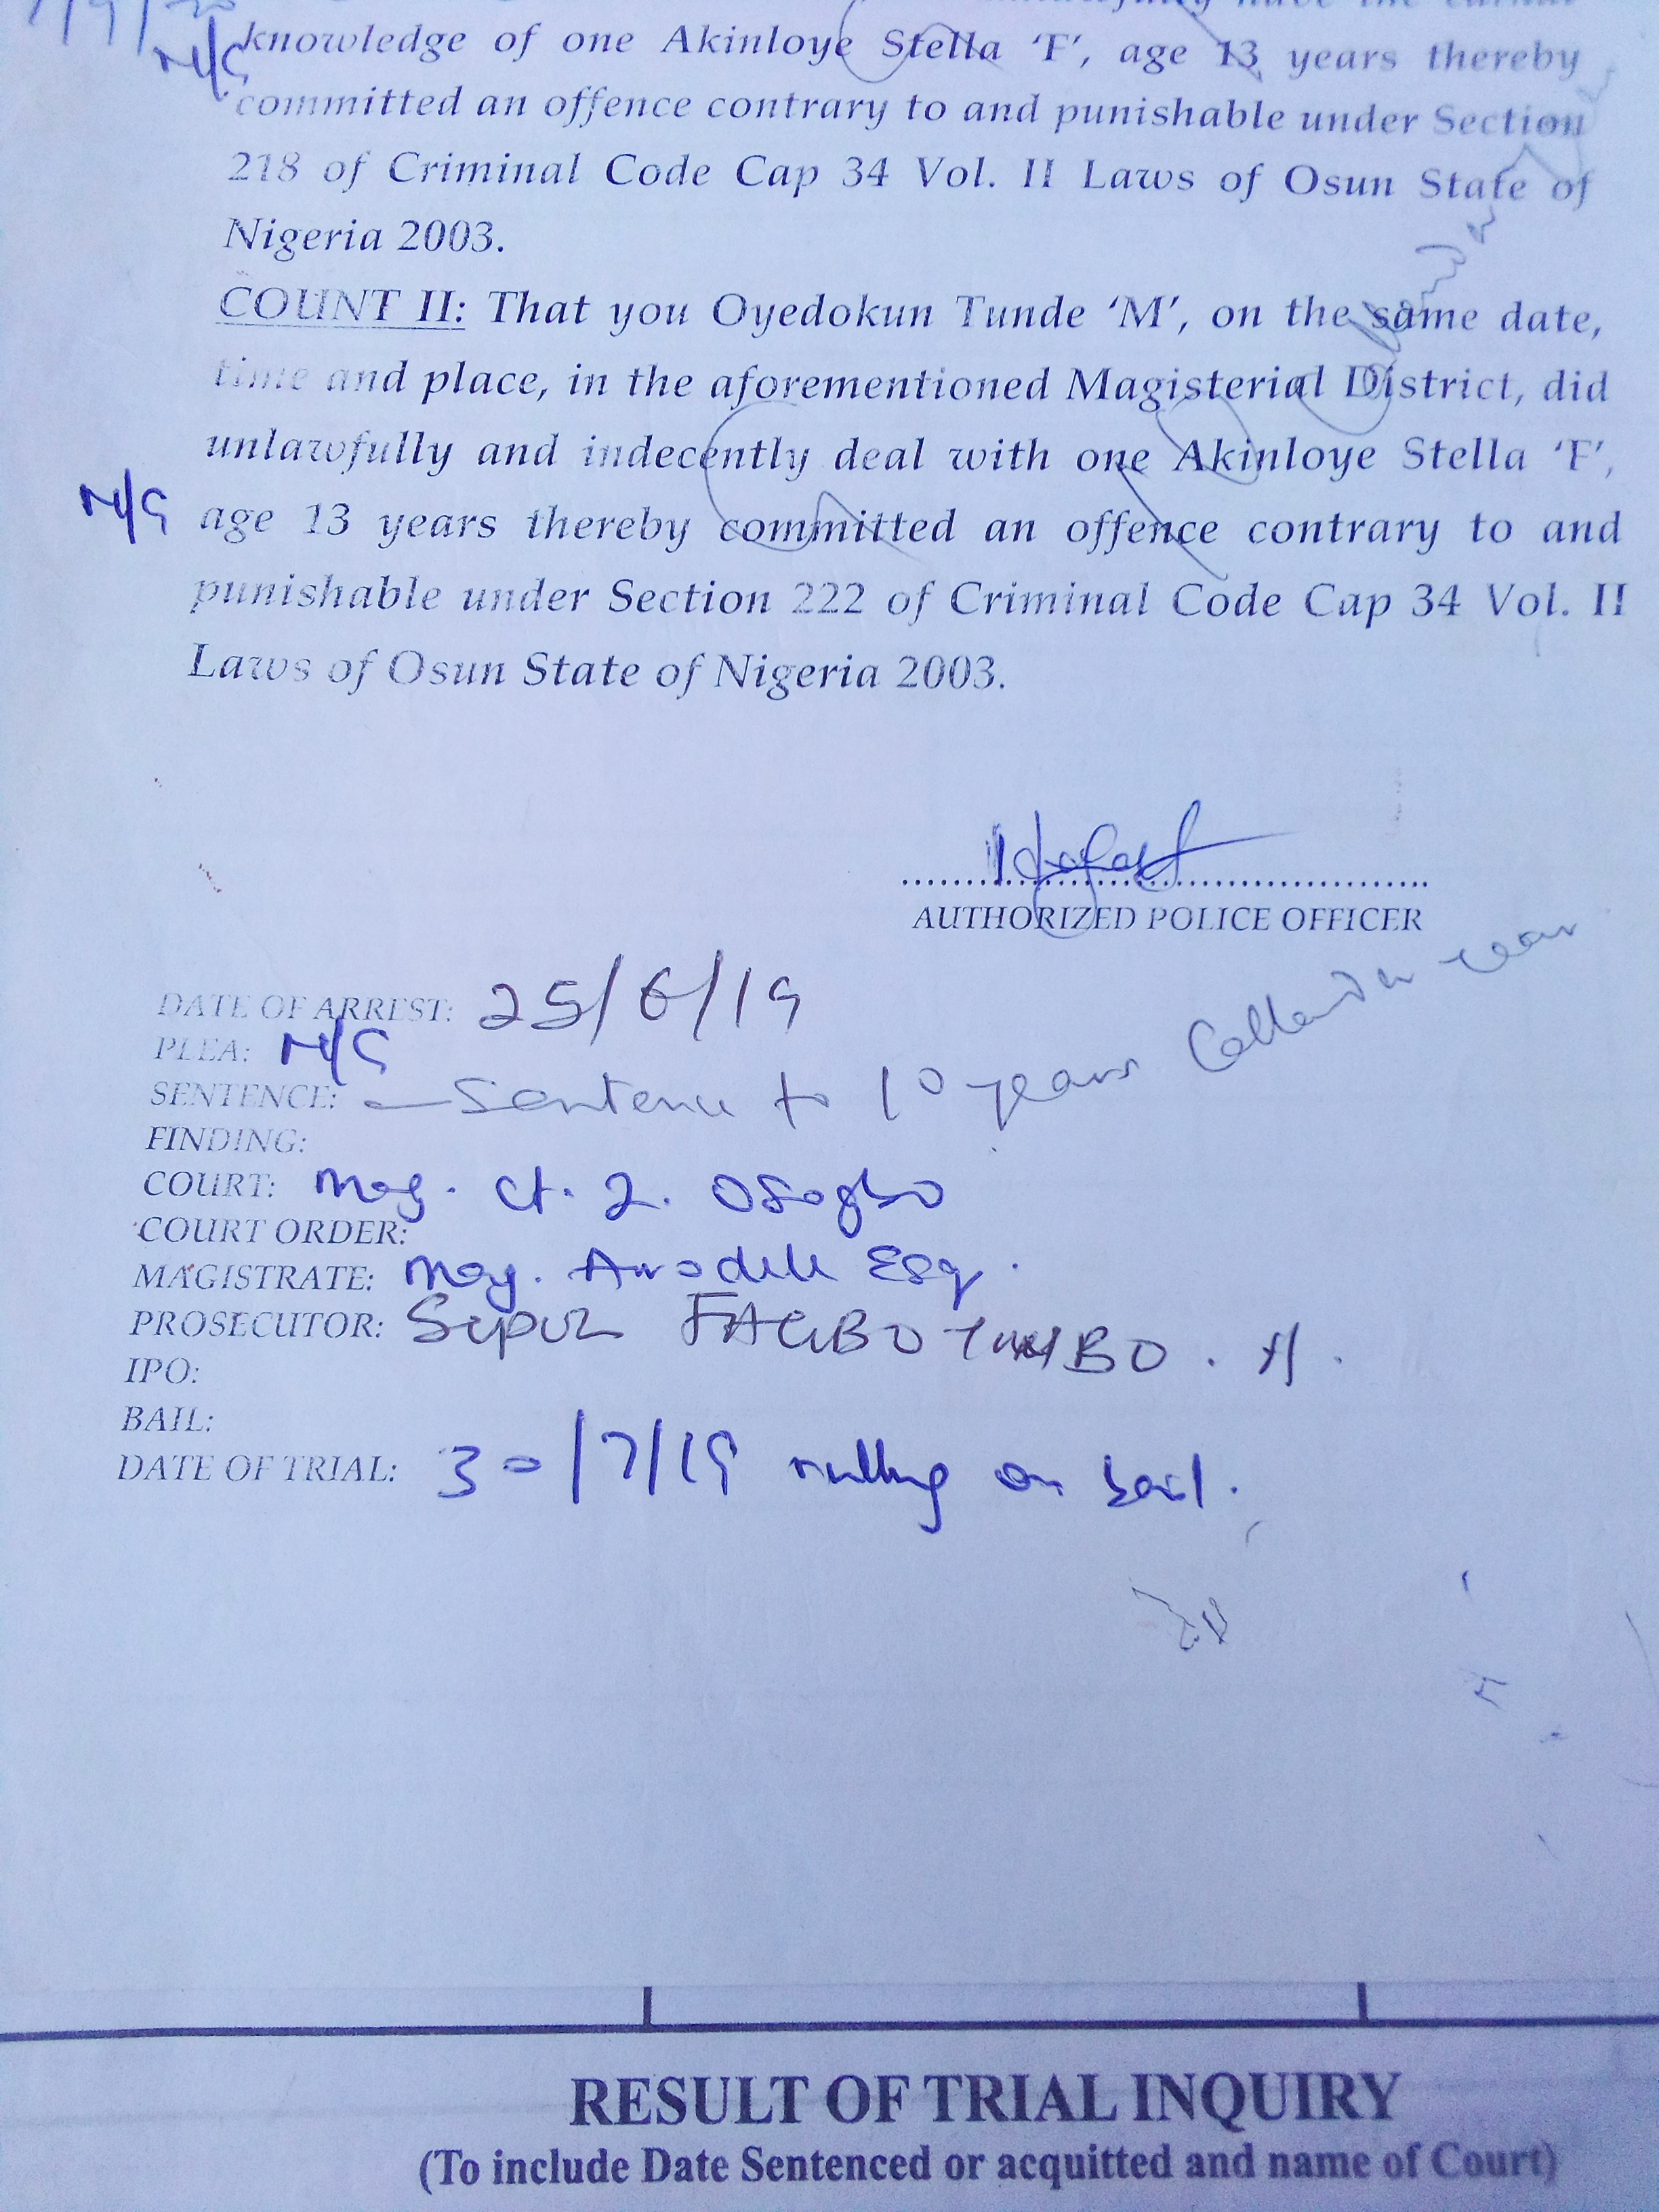 unlawfully have the carnal
N/G knowledge of one Akinloye Stella 'F', age 13 years thereby
committed an offence contrary to and punishable under Section
218 of Criminal Code Cap 34 Vol. II Laws of Osun State of
Nigeria 2003.
COUNT II: That you Oyedokun Tunde 'M', on the same date,
time and place, in the aforementioned Magisterial District, did
unlawfully and indecently deal with one Akinloye Stella 'F',
N/G age 13 years thereby committed an offence contrary to and
punishable under Section 222 of Criminal Code Cap 34 Vol. II
Laws of Osun State of Nigeria 2003.
AUTHORIZED POLICE OFFICER
DATE OF ARREST: 25/6/19
PLEA: N/G
SENTENCE: - Sentence to 10 years Callander year
FINDING:
COURT: Mag. Ct. 2. Osogbo
COURT ORDER:
MAGISTRATE: Mag. Awodele Esq.
PROSECUTOR:
IPO:
BAIL:
DATE OF TRIAL: 30/7/19 rulling on bail.
RESULT OF TRIAL INQUIRY
(To include Date Sentenced or acquitted and name of Court)